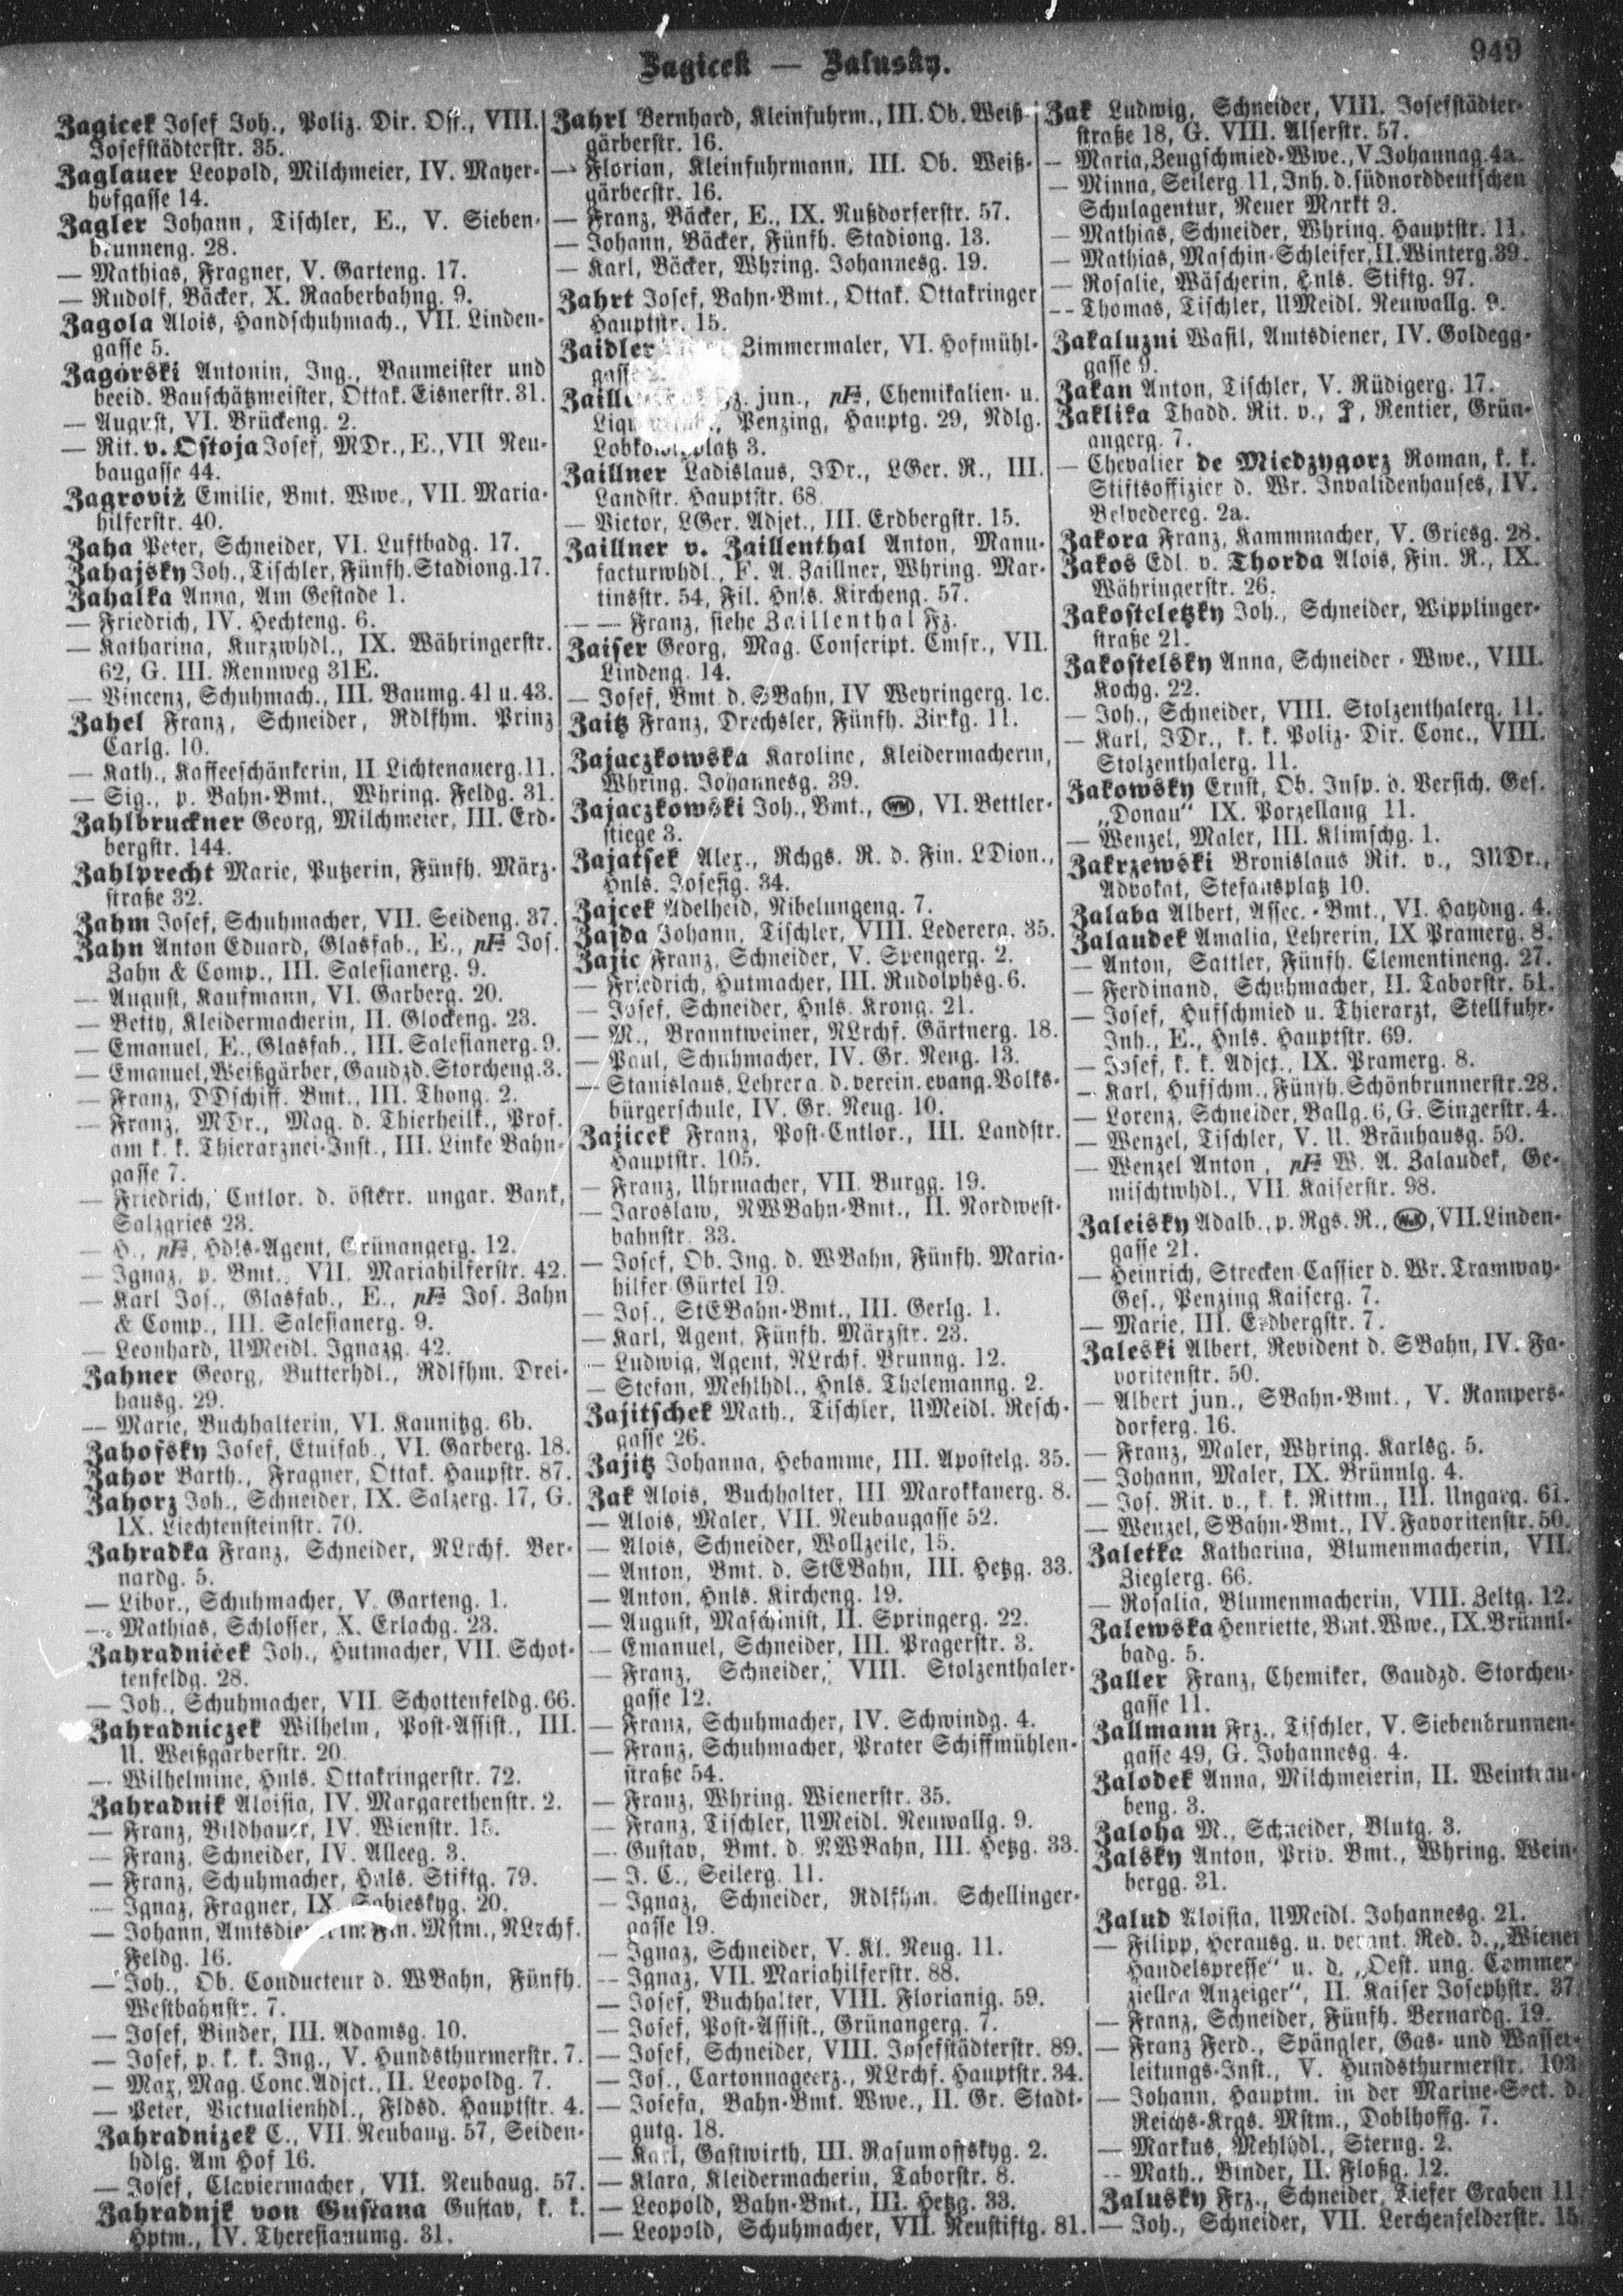 Zagicek — Zalusky.
949
Zagicek Josef Joh., Poliz. Dir. Off., VIII.
Josefstädterstr. 35.
Zaglauer Leopold, Milchmeier, IV. Mayer-
hofgasse 14.
Zagler Johann, Tischler, E., V. Sieben-
brunneng. 28.
— Mathias, Fragner, V. Garteng. 17.
— Rudolf, Bäcker, X. Raaberbahng. 9.
Zagola Alois, Handschuhmach., VII. Linden-
gasse 5.
Zagórski Antonin, Ing., Baumeister und
beeid. Bauschätzmeister, Ottak. Eisnerstr. 31.
— August, VI. Brückeng. 2.
— Rit. v. Ostoja Josef, MDr., E., VII Neu-
baugasse 44.
Zagroviž Emilie, Bmt. Wwe., VII. Maria-
hilferstr. 40.
Zaha Peter, Schneider, VI. Luftbadg. 17.
Zahajsky Joh., Tischler, Fünfh. Stadiong. 17.
Zahalka Anna, Am Gestade 1.
— Friedrich, IV. Hechteng. 6.
— Katharina, Kurzwhdl., IX. Währingerstr.
62, G. III. Rennweg 31E.
— Vincenz, Schuhmach., III. Baumg. 41 u. 43.
Zahel Franz, Schneider, Rdlfhm. Prinz
Carlg. 10.
— Kath., Kaffeeschänkerin, II Lichtenauerg. 11.
— Sig., p. Bahn-Bmt., Whring. Feldg. 31.
Zahlbruckner Georg, Milchmeier, III. Erd-
bergstr. 144.
Zahlprecht Marie, Putzerin, Fünfh. März-
straße 32.
Zahm Josef, Schuhmacher, VII. Seideng. 37.
Zahn Anton Eduard, Glasfab., E., pF Jos.
Zahn & Comp., III. Salesianerg. 9.
— August, Kaufmann, VI. Garberg. 20.
— Betty, Kleidermacherin, II. Glockeng. 23.
— Emanuel, E., Glasfab., III. Salesianerg. 9.
— Emanuel, Weißgärber, Gaudzd. Storcheng. 3.
— Franz, DDschiff. Bmt., III. Thong. 2.
— Franz, MDr., Mag. d. Thierheilk., Prof.
am k. k. Thierarznei-Inst., III. Linke Bahn-
gasse 7.
— Friedrich, Cntlor. d. österr. ungar. Bank,
Salzgries 23.
— H., pF, Hdls-Agent, Grünangerg. 12.
— Ignaz, p. Bmt., VII. Mariahilferstr. 42.
— Karl Jos., Glasfab., E., pF Jos. Zahn
& Comp., III. Salesianerg. 9.
— Leonhard, UMeidl. Ignazg. 42.
Zahner Georg, Butterhdl., Rdlfhm. Drei-
hausg. 29.
— Marie, Buchhalterin, VI. Kaunitzg. 6b.
Zahofsky Josef, Etuifab., VI. Garberg. 18.
Zahor Barth., Fragner, Ottak. Haupstr. 87.
Zahorz Joh., Schneider, IX. Salzerg. 17, G.
IX. Liechtensteinstr. 70.
Zahradka Franz, Schneider, NLrchf. Ber-
nardg. 5.
— Libor., Schuhmacher, V. Garteng. 1.
— Mathias, Schlosser, X. Erlachg. 23.
Zahradniček Joh., Hutmacher, VII. Schot-
tenfeldg. 28.
— Joh., Schuhmacher, VII. Schottenfeldg. 66.
Zahradniczek Wilhelm, Post-Assist., III.
U. Weißgärberstr. 20.
— Wilhelmine, Hnls. Ottakringerstr. 72.
Zahradnik Aloisia, IV. Margarethenstr. 2.
— Franz, Bildhauer, IV. Wienstr. 15.
— Franz, Schneider, IV. Alleeg. 3.
— Franz, Schuhmacher, Hnls. Stiftg. 79.
— Ignaz, Fragner, IX. Sobieskyg. 20.
— Johann, Amtsdiener im Fin. Mstm., NLrchf.
Feldg. 16.
— Joh., Ob. Conducteur d. WBahn, Fünfh.
Westbahnstr. 7.
— Josef, Binder, III. Adamsg. 10.
— Josef, p. k. k. Ing., V. Hundsthurmerstr. 7.
— Max, Mag. Conc. Adjct., II. Leopoldg. 7.
— Peter, Victualienhdl., Fldsd. Hauptstr. 4.
Zahradnizek C., VII. Neubaug. 57, Seiden-
hdlg. Am Hof 16.
— Josef, Claviermacher, VII. Neubaug. 57.
Zahradnjk von Gustana Gustav, k. k.
Hptm., IV. Theresianumg. 31.
Zahrl Bernhard, Kleinfuhrm., III. Ob. Weiß-
gärberstr. 16.
— Florian, Kleinfuhrmann, III. Ob. Weiß-
gärberstr. 16.
— Franz, Bäcker, E., IX. Nußdorferstr. 57.
— Johann, Bäcker, Fünfh. Stadiong. 13.
— Karl, Bäcker, Whring. Johannesg. 19.
Zahrt Josef, Bahn-Bmt., Ottak. Ottakringer
Hauptstr. 15.
Zaidler Zimmermaler, VI. Hofmühl-
gasse
jun., pF, Chemikalien- u.
Penzing, Hauptg. 29, Ndlg.
Lobkowitzplatz 3.
Zaillner Ladislaus, JDr., LGer. R., III.
Landstr. Hauptstr. 68.
— Victor, LGer. Adjct., III. Erdbergstr. 15.
Zaillner v. Zaillenthal Anton, Manu-
facturwhdl., F. A. Zaillner, Whring. Mar-
tinsstr. 54, Fil. Hnls. Kircheng. 57.
— — Franz, siehe Zaillenthal Fz.
Zaiser Georg, Mag. Conscript. Cmsr., VII.
Lindeng. 14.
— Josef, Bmt. d. SBahn, IV Weyringerg. 1c.
Zaitz Franz, Drechsler, Fünfh. Zinkg. 11.
Zajaczkowska Karoline, Kleidermacherin,
Whring. Johannesg. 39.
Zajaczkowski Joh., Bmt., WM, VI. Bettler-
stiege 3.
Zajatsek Alex., Rchgs. R. d. Fin. LDion.,
Hnls. Josefig. 34.
Zajcek Adelheid, Nibelungeng. 7.
Zajda Johann, Tischler, VIII. Ledererg. 35.
Zajic Franz, Schneider, V. Spengerg. 2.
— Friedrich, Hutmacher, III. Rudolphsg. 6.
— Josef, Schneider, Hnls. Krong. 21.
— M., Branntweiner, NLrchf. Gärtnerg. 18.
— Paul, Schuhmacher, IV. Gr. Neug. 13.
— Stanislaus, Lehrer a. d. verein. evang. Volks-
bürgerschule, IV. Gr. Neug. 10.
Zajicek Franz, Post-Cntlor., III. Landstr.
Hauptstr. 105.
— Franz, Uhrmacher, VII. Burgg. 19.
— Jaroslaw, NWBahn-Bmt., II. Nordwest-
bahnstr. 33.
— Josef, Ob. Ing. d. WBahn, Fünfh. Maria-
hilfer Gürtel 19.
— Jos., StEBahn-Bmt., III. Gerlg. 1.
— Karl, Agent, Fünfh. Märzstr. 23.
— Ludwig, Agent, NLrchf. Brunng. 12.
— Stefan, Mehlhdl., Hnls. Thelemanng. 2.
Zajitschek Math., Tischler, UMeidl. Resch-
gasse 26.
Zajitz Johanna, Hebamme, III. Apostelg. 35.
Zak Alois, Buchhalter, III Marokkanerg. 8.
— Alois, Maler, VII. Neubaugasse 52.
— Alois, Schneider, Wollzeile, 15.
— Anton, Bmt. d. StEBahn, III. Hetzg. 33.
— Anton, Hnls. Kircheng. 19.
— August, Maschinist, II. Springerg. 22.
— Emanuel, Schneider, III. Pragerstr. 3.
— Franz, Schneider, VIII. Stolzenthaler-
gasse 12.
— Franz, Schuhmacher, IV. Schwindg. 4.
— Franz, Schuhmacher, Prater Schiffmühlen-
straße 54.
— Franz, Whring. Wienerstr. 35.
— Franz, Tischler, UMeidl. Neuwallg. 9.
— Gustav, Bmt. d. NWBahn, III. Hetzg. 33.
— J. C., Seilerg. 11.
— Ignaz, Schneider, Rdlfhm. Schellinger-
gasse 19.
— Ignaz, Schneider, V. Kl. Neug. 11.
— Ignaz, VII. Mariahilferstr. 88.
— Josef, Buchhalter, VIII. Florianig. 59.
— Josef, Post-Assist., Grünangerg. 7.
— Josef, Schneider, VIII. Josefstädterstr. 89.
— Jos., Cartonnageerz., NLrchf. Hauptstr. 34.
— Josefa, Bahn-Bmt. Wwe., II. Gr. Stadt-
gutg. 18.
— Karl, Gastwirth, III. Rasumoffskyg. 2.
— Klara, Kleidermacherin, Taborstr. 8.
— Leopold, Bahn-Bmt., III. Hetzg. 33.
— Leopold, Schuhmacher, VII. Neustiftg. 81.
Zak Ludwig, Schneider, VIII. Josefstädter-
straße 18, G. VIII. Alserstr. 57.
— Maria, Zeugschmied-Wwe., V. Johannag. 4a.
— Minna, Seilerg. 11, Inh. d. südnorddeutschen
Schulagentur, Neuer Markt 9.
— Mathias, Schneider, Whring. Hauptstr. 11.
— Mathias, Maschin-Schleifer, II. Winterg. 39.
— Rosalie, Wäscherin, Hnls. Stiftg. 97.
— Thomas, Tischler, UMeidl. Neuwallg. 9.
Zakaluzni Wasil, Amtsdiener, IV. Goldegg-
gasse 9.
Zakan Anton, Tischler, V. Rüdigerg. 17.
Zaklika Thadd. Rit. v., Rentier, Grün-
angerg. 7.
— Chevalier de Miedzygorz Roman, k. k.
Stiftsoffizier d. Wr. Invalidenhauses, IV.
Belvedereg. 2a.
Zakora Franz, Kammmacher, V. Griesg. 28.
Zakos Edl. v. Thorda Alois, Fin. R., IX.
Währingerstr. 26.
Zakosteletzky Joh., Schneider, Wipplinger-
straße 21.
Zakostelsky Anna, Schneider-Wwe., VIII.
Kochg. 22.
— Joh., Schneider, VIII. Stolzenthalerg. 11.
— Karl, JDr., k. k. Poliz- Dir. Conc., VIII.
Stolzenthalerg. 11.
Zakowsky Ernst, Ob. Insp. d. Versich. Ges.
„Donau" IX. Porzellang 11.
— Wenzel, Maler, III. Klimschg. 1.
Zakrzewski Bronislaus Rit. v., JUDr.,
Advokat, Stefansplatz 10.
Zalaba Albert, Assec.-Bmt., VI. Haydng. 4.
Zalaudek Amalia, Lehrerin, IX Pramerg. 8.
— Anton, Sattler, Fünfh. Clementineng. 27.
— Ferdinand, Schuhmacher, II. Taborstr. 51.
— Josef, Hufschmied u. Thierarzt, Stellfuhr-
Inh., E., Hnls. Hauptstr. 69.
— Josef, k. k. Adjct., IX. Pramerg. 8.
— Karl, Hufschm., Fünfh. Schönbrunnerstr. 28.
— Lorenz, Schneider, Ballg. 6, G. Singerstr. 4.
— Wenzel, Tischler, V. U. Bräuhausg. 50.
— Wenzel Anton, pF W. A. Zalaudek, Ge-
mischtwhdl., VII. Kaiserstr. 98.
Zaleisky Adalb., p. Rgs. R., VII. Linden-
gasse 21.
— Heinrich, Strecken-Cassier d. Wr. Tramway-
Ges., Penzing Kaiserg. 7.
— Marie, III. Erdbergstr. 7.
Zaleski Albert, Revident d. SBahn, IV. Fa-
voritenstr. 50.
— Albert jun., SBahn-Bmt., V. Rampers-
dorferg. 16.
— Franz, Maler, Whring. Karlsg. 5.
— Johann, Maler, IX. Brünnlg. 4.
— Jos. Rit. v., k. k. Rittm., III. Ungarg. 61.
— Wenzel, SBahn-Bmt., IV. Favoritenstr. 50.
Zaletka Katharina, Blumenmacherin, VII.
Zieglerg. 66.
— Rosalia, Blumenmacherin, VIII. Zeltg. 12.
Zalewska Henriette, Bmt. Wwe., IX. Brünnl-
badg. 5.
Zaller Franz, Chemiker, Gaudzd. Storchen-
gasse 11.
Zallmann Frz., Tischler, V. Siebenbrunnen-
gasse 49, G. Johannesg. 4.
Zalodek Anna, Milchmeierin, II. Weintrau-
beng. 3.
Zaloha M., Schneider, Blutg. 3.
Zalsky Anton, Priv. Bmt., Whring. Wein-
bergg. 31.
Zalud Aloisia, UMeidl. Johannesg. 21.
— Filipp, Herausg. u. verant. Red. d. „Wiener
Handelspresse" u. d. „Oest. ung. Commer-
ziellen Anzeiger", II. Kaiser Josephstr. 37
— Franz, Schneider, Fünfh. Bernardg. 19.
— Franz Ferd., Spängler, Gas- und Wasser-
leitungs-Inst., V. Hundsthurmerstr. 103
— Johann, Hauptm. in der Marine-Sect. d.
Reichs-Krgs. Mstm., Doblhoffg. 7.
— Markus, Mehlhdl., Sterng. 2.
— Math., Binder, II. Floßg. 12.
Zalusky Frz., Schneider, Tiefer Graben 11
— Joh., Schneider, VII. Lerchenfelderstr. 15.